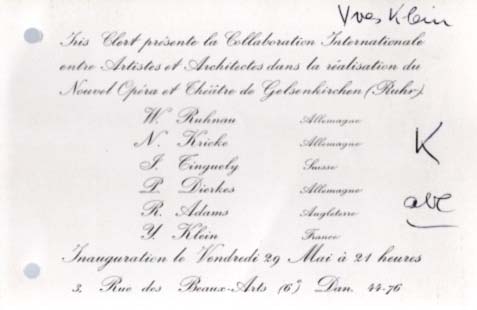 Yves Klein
Iris Clert présente la Collaboration Internationale
entre Artistes et Architectes dans la réalisation du
Nouvel Opéra et Théâtre de Gelsenkirchen (Ruhr)
W. Ruhnau Allemagne
N. Kricke Allemagne
J. Tinguely Suisse
P. Dierkes Allemagne
R. Adams Angleterre
Y. Klein France
K
abc
Inauguration le Vendredi 29 Mai à 21 heures
3, Rue des Beaux-Arts (6e) Dan. 44-76